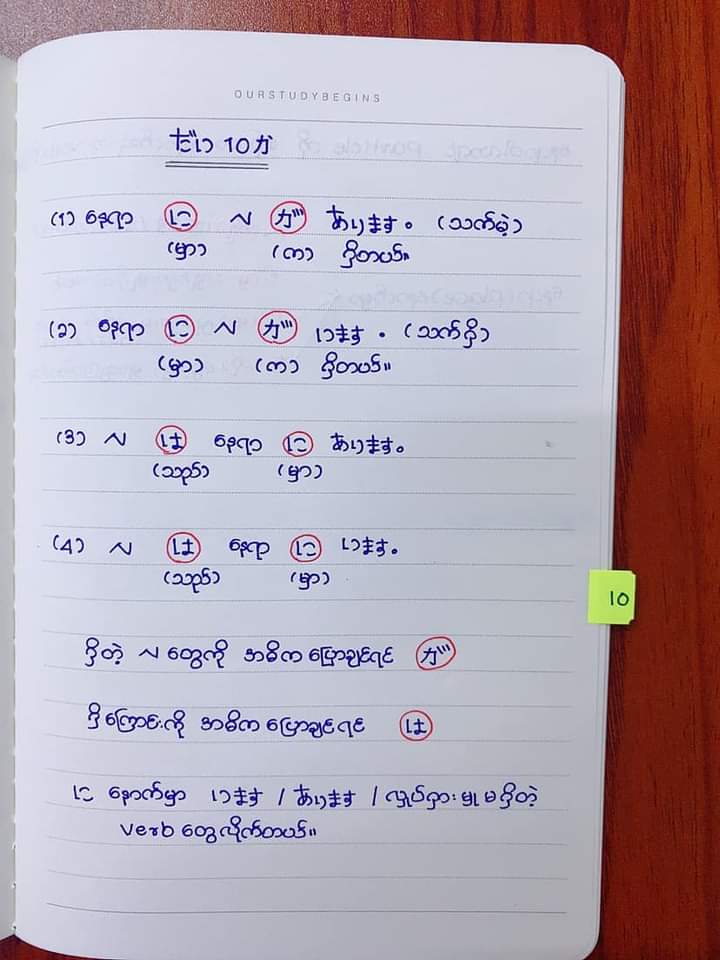 OURSTUDYBEGINS
だい 10 か
(1) နေရာ に N が あります。 (သက်မဲ့)
(မှာ) (က) ရှိတယ်။
(၁) နေရာ に N が います。 (သက်ရှိ)
(မှာ) (က) ရှိတယ်။
(3) N は နေရာ に あります。
(သည်) (မှာ)
(4) N は နေရာ に います。
(သည်) (မှာ)
10
ရှိတဲ့ N တွေကို အဓိကပြောချင်ရင် が
ရှိကြောင်းကို အဓိကပြောချင်ရင် は
に နောက်မှာ います / あります / လှုပ်ရှားမှု မရှိတဲ့
verb တွေလိုက်တယ်။